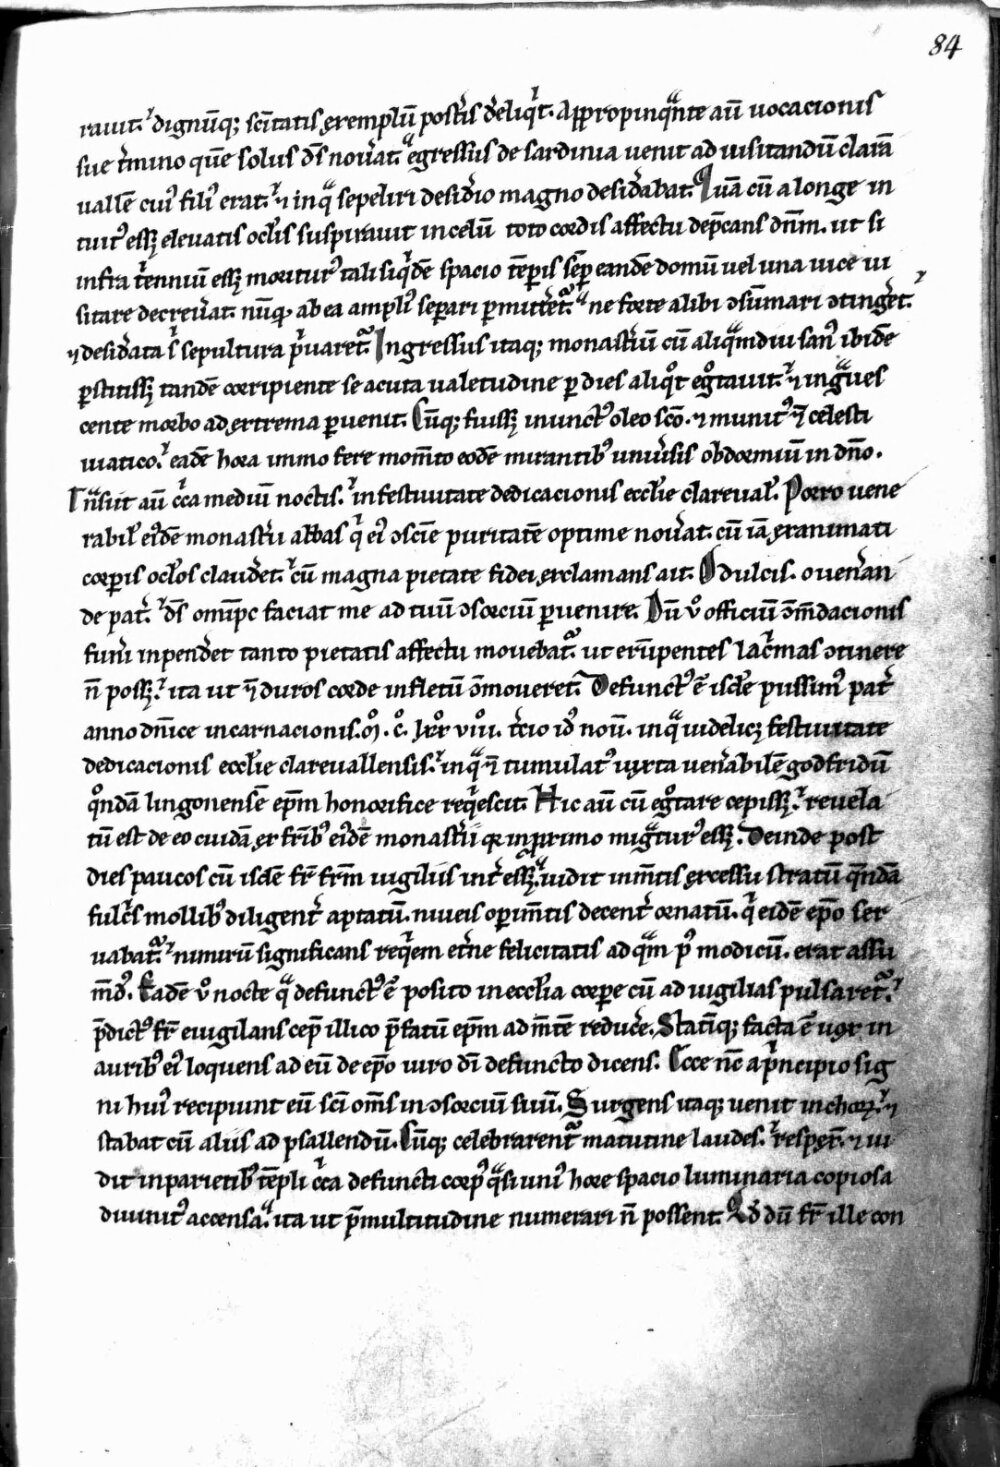 84
rauit. dignūq; scītatis exemplū post̄is d̄eliq̄t. Appropinquante aū uocacionis
sue t̄mino quē solus d̄s nou̓at. egressus de sardinia uenit ad uisitandū clarā
uallē cui⁹ fili⁹ erat. ⁊ in qͣ sepeliri desid̓io magno desid̓abat. Quā cū a longe in
tuit⁹ esset eleuatis oc̄lis suspirauit in celū toto cordis affectu dep̄cans dn̄m. ut si
infra t̓ennuū esset moritur⁹ tali siq̓dē spacio tēp̄is sēp eandē domū uel una uice ui
sitare decreu̓at. nūq̄ ab ea ampli⁹ sep̄ari p̄mitt̓et. ne forte alibi ɔsūmari ɔting̓et.
⁊ desid̓ata sͥ sepultura p̓uaret. Ingressus itaq; monast̓iū cū aliqͣmdiu san⁹ ibidē
p̄stitisset tandē corripiente se acuta ualetudine p̄ dies aliqͦt egͦtauit. ⁊ ingͣues
cente morbo ad extrema p̄uenit. Cūq; fuisset inunct⁹ oleo scō. ⁊ munit⁹ ē celesti
uiatico. eadē hora immo fere momt̄o eodē mirantib⁹ uniu̓sis obdormiuit in dn̄o.
Insūt aū cͥca mediū noctis. in festiuitate dedicacionis ecclīe clareuał. Porro uene
rabil̓ ei⁹dē monast̓ii abbas qͥ ei⁹ ɔsciē puritatē optime nou̓at. cū iā exanimati
corp̄is oc̄los claud̓et. cū magna pietate fidei exclamans ait. O dulcis. o uen̓an
de pat̓. d̄s omīpc̄ faciat me ad tuū ɔsorciū p̄uenire. Dū u̓o officiū ɔmdacionis
fun̓i inpend̓et tanto pietatis affectu mouebat̓. ut erūpentes lac̓mas ɔtinere
n̄ posset. ita ut ⁊ duros corde in fletū ɔmoueret. Defunct⁹ ē isdē piissim⁹ pat̓
anno dn̄ice incarnacionis. mͦ. cͦ. lxͦxͦ viiiͦ. t̓cio id⁹ nou̓. in qͣ uidelicet festiuitate
dedicacionis ecclīe clareuallensis. in qͣ ⁊ tumulat⁹ iuxta uen̓abilē godfridū
qͦndā lingonensē ep̄m honorifice req̓escit. Hic aū cū egͦtare cepisset. reuela
tū est de eo cuidā ex fr̄ib⁹ ei⁹dē monast̓ii qr̄ in p̄rimo migͣtur⁹ esset. Deinde post
dies paucos cū isdē fr̄ fr̄m uigiliis int̓esset. uidit in mt̄is excessu stratū qͣndā
fulc̓s mollib⁹ diligent̓ aptatū. niueis op̓imt̄is decent̓ ornatū. qͥ eidē ep̄o ser
uabat̓. nimirū significans req̓em et̓ne felicitatis ad qͣm p⁹ modicū. erat assu
md̄⁹. Eadē u̓o nocte qͣ defunct⁹ ē posito in ecclīa corpe cū ad uigilias pulsaret̓.
p̄dict⁹ fr̄ euigilans cep̄ illico p̄fatū ep̄m ad mt̄ē reduc̓e. Statīq; facta ē uox in
aurib⁹ ei⁹ loquens ad eū de ep̄o uiro dī defuncto dicens. Ecce nc̄ a p̓ncipio sig
ni hui⁹ recipiunt eū scī oms̄ in ɔsorciū suū. Surgens itaq; uenit in chorꝫ. ⁊
stabat cū aliis ad psallendū. Cūq; celebrarent̓ matutine laudes. respex̄. ⁊ ui
dit in parietib⁹ tēpli cͥca defuncti corp⁹ qͣsi uni⁹ hore spacio luminaria copiosa
diuinit⁹ accensa. ita ut p̄ multitudine numerari n̄ possent. Qd̄ dū fr̄ ille con